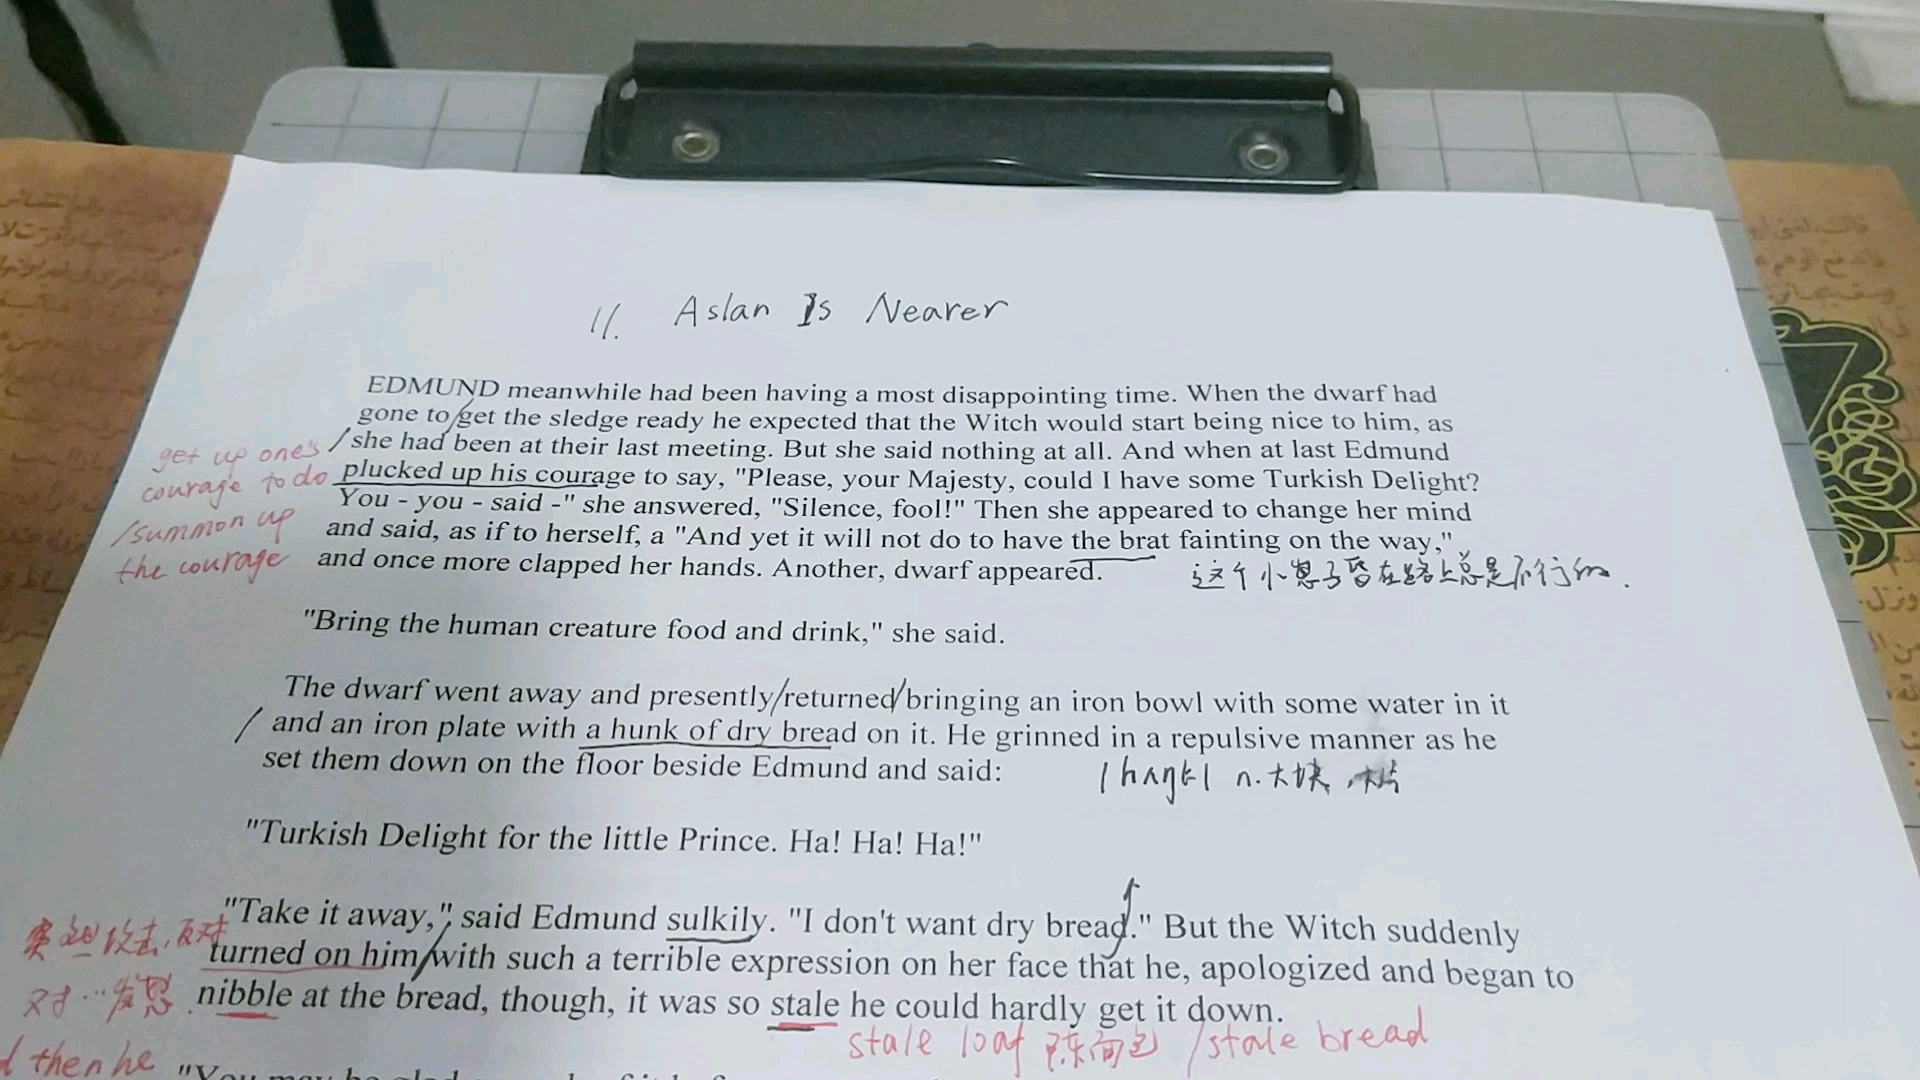 11. Aslan Is Nearer
EDMUND meanwhile had been having a most disappointing time. When the dwarf had
gone to/get the sledge ready he expected that the Witch would start being nice to him, as
/she had been at their last meeting. But she said nothing at all. And when at last Edmund
plucked up his courage to say, "Please, your Majesty, could I have some Turkish Delight?
You - you - said -" she answered, "Silence, fool!" Then she appeared to change her mind
and said, as if to herself, a "And yet it will not do to have the brat fainting on the way,"
and once more clapped her hands. Another, dwarf appeared.
get up one's
courage to do
/summon up
the courage
这个小崽子昏在路上总是不行的.
"Bring the human creature food and drink," she said.
The dwarf went away and presently/returned/bringing an iron bowl with some water in it
/ and an iron plate with a hunk of dry bread on it. He grinned in a repulsive manner as he
set them down on the floor beside Edmund and said:
|hʌŋk| n.大块
"Turkish Delight for the little Prince. Ha! Ha! Ha!"
"Take it away," said Edmund sulkily. "I don't want dry bread." But the Witch suddenly
turned on him/with such a terrible expression on her face that he, apologized and began to
nibble at the bread, though, it was so stale he could hardly get it down.
攻击,反对
对…发怒
stale loaf 陈面包 /stale bread
then he